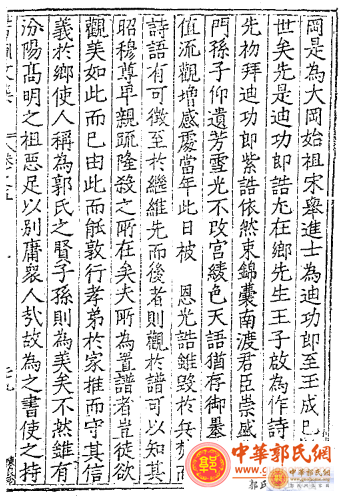 岡是為大岡始祖宋舉進士為迪功郎至王成已
世矣先是迪功郎誥尤在鄉先生王子啟為作詩
先枌拜迪功郎紫誥依然束錦囊南渡君臣崇盛
門孫子仰遺芳雪光不改宮綾色天語猶存御墨
值流觀增感處當年此日被 恩光誥雖毀於兵而
詩語有可徵至於繼維先而後者則觀於譜可以知其
昭穆尊卑親疏隆殺之所在矣夫所為置譜者豈徒欲
觀美如此而已由此而能敦行孝弟於家推而守其信
義於鄉使人稱為郭氏之賢子孫則為美矣不然雖有
汾陽高明之祖惡足以別庸眾人哉故為之書使之持
中華郭氏網